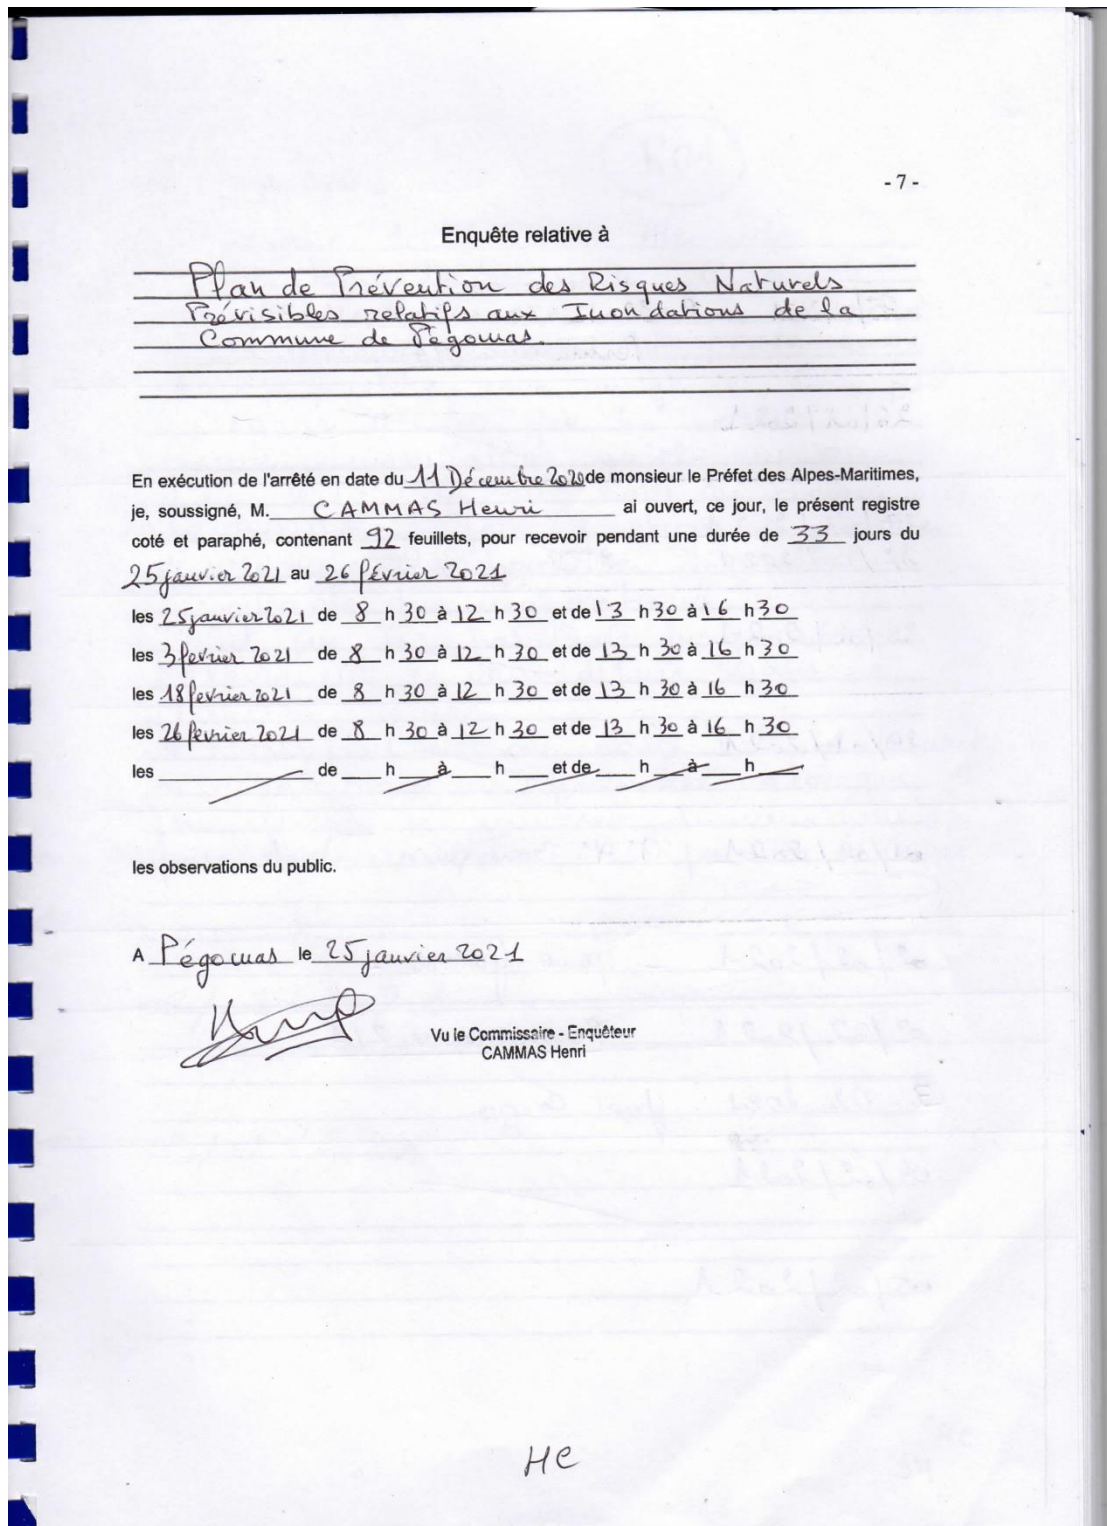 - 7 -
Enquête relative à
Plan de Prévention des Risques Naturels
Prévisibles relatifs aux Inondations de la
Commune de Pégomas.
En exécution de l'arrêté en date du 11 Décembre 2020 de monsieur le Préfet des Alpes-Maritimes,
je, soussigné, M. CAMMAS Henri ai ouvert, ce jour, le présent registre
coté et paraphé, contenant 92 feuillets, pour recevoir pendant une durée de 33 jours du
25 janvier 2021 au 26 février 2021
les 25 janvier 2021 de 8 h 30 à 12 h 30 et de 13 h 30 à 16 h 30
les 3 fevrier 2021 de 8 h 30 à 12 h 30 et de 13 h 30 à 16 h 30
les 18 fevrier 2021 de 8 h 30 à 12 h 30 et de 13 h 30 à 16 h 30
les 26 fevrier 2021 de 8 h 30 à 12 h 30 et de 13 h 30 à 16 h 30
les ________ de ___ h ___ à ___ h ___ et de ___ h ___ à ___ h ___
les observations du public.
A Pégomas le 25 janvier 2021
Vu le Commissaire - Enquêteur
CAMMAS Henri
HC